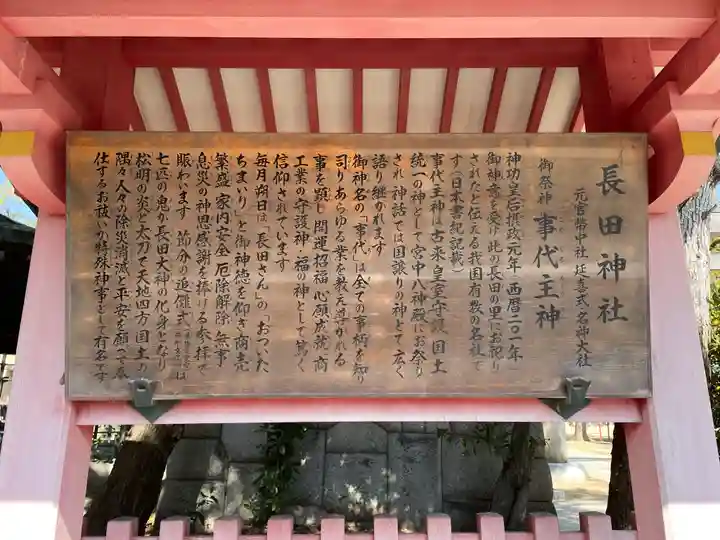 長田神社
元官幣中社 延喜式名神大社
御祭神 事代主神
神功皇后摂政元年(西暦二〇一年)
御神意を受け此の長田の里にお祀り
されたと伝える我国有数の名社で
す(日本書紀記載)
事代主神は古来皇室守護、国土
統一の神として宮中八神殿にお祭り
され、神話では国譲りの神として広く
語り継がれます
御神名の「事代」は全ての事柄を知り
司りあらゆる業を教え導かれる
事を顕し開運招福心願成就、商
工業の守護神、福の神として篤く
信仰されています
毎月朔日は「長田さん」の「おついた
ちまいり」と御神徳を仰ぎ商売
繁盛、家内安全、厄除解除、無事
息災の神恩感謝を捧げる参拝で
賑わいます 節分の追儺式は
七匹の鬼が長田大神の化身となり
松明の炎と太刀で天地四方国土の
隅々人々の除災消滅と平安を願って奉
仕するお祓いの特殊神事として有名です